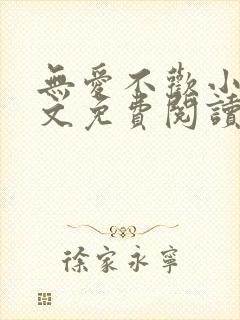 無愛不歡小
文免費閱讀
徐家永寧